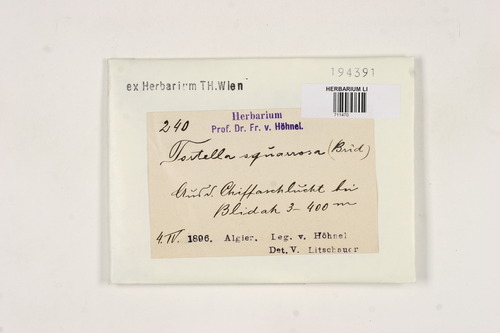 194391
ex Herbarium TH.Wien
HERBARIUM LI
Herbarium
Prof. Dr. Fr. v. Höhnel.
240
Tortella squarrosa (Brid)
Aus d. Chiffaschlucht bei
Blidah 3-400 m
4. IV. 1896. Algier. Leg. v. Höhnel
Det. V. Litschauer